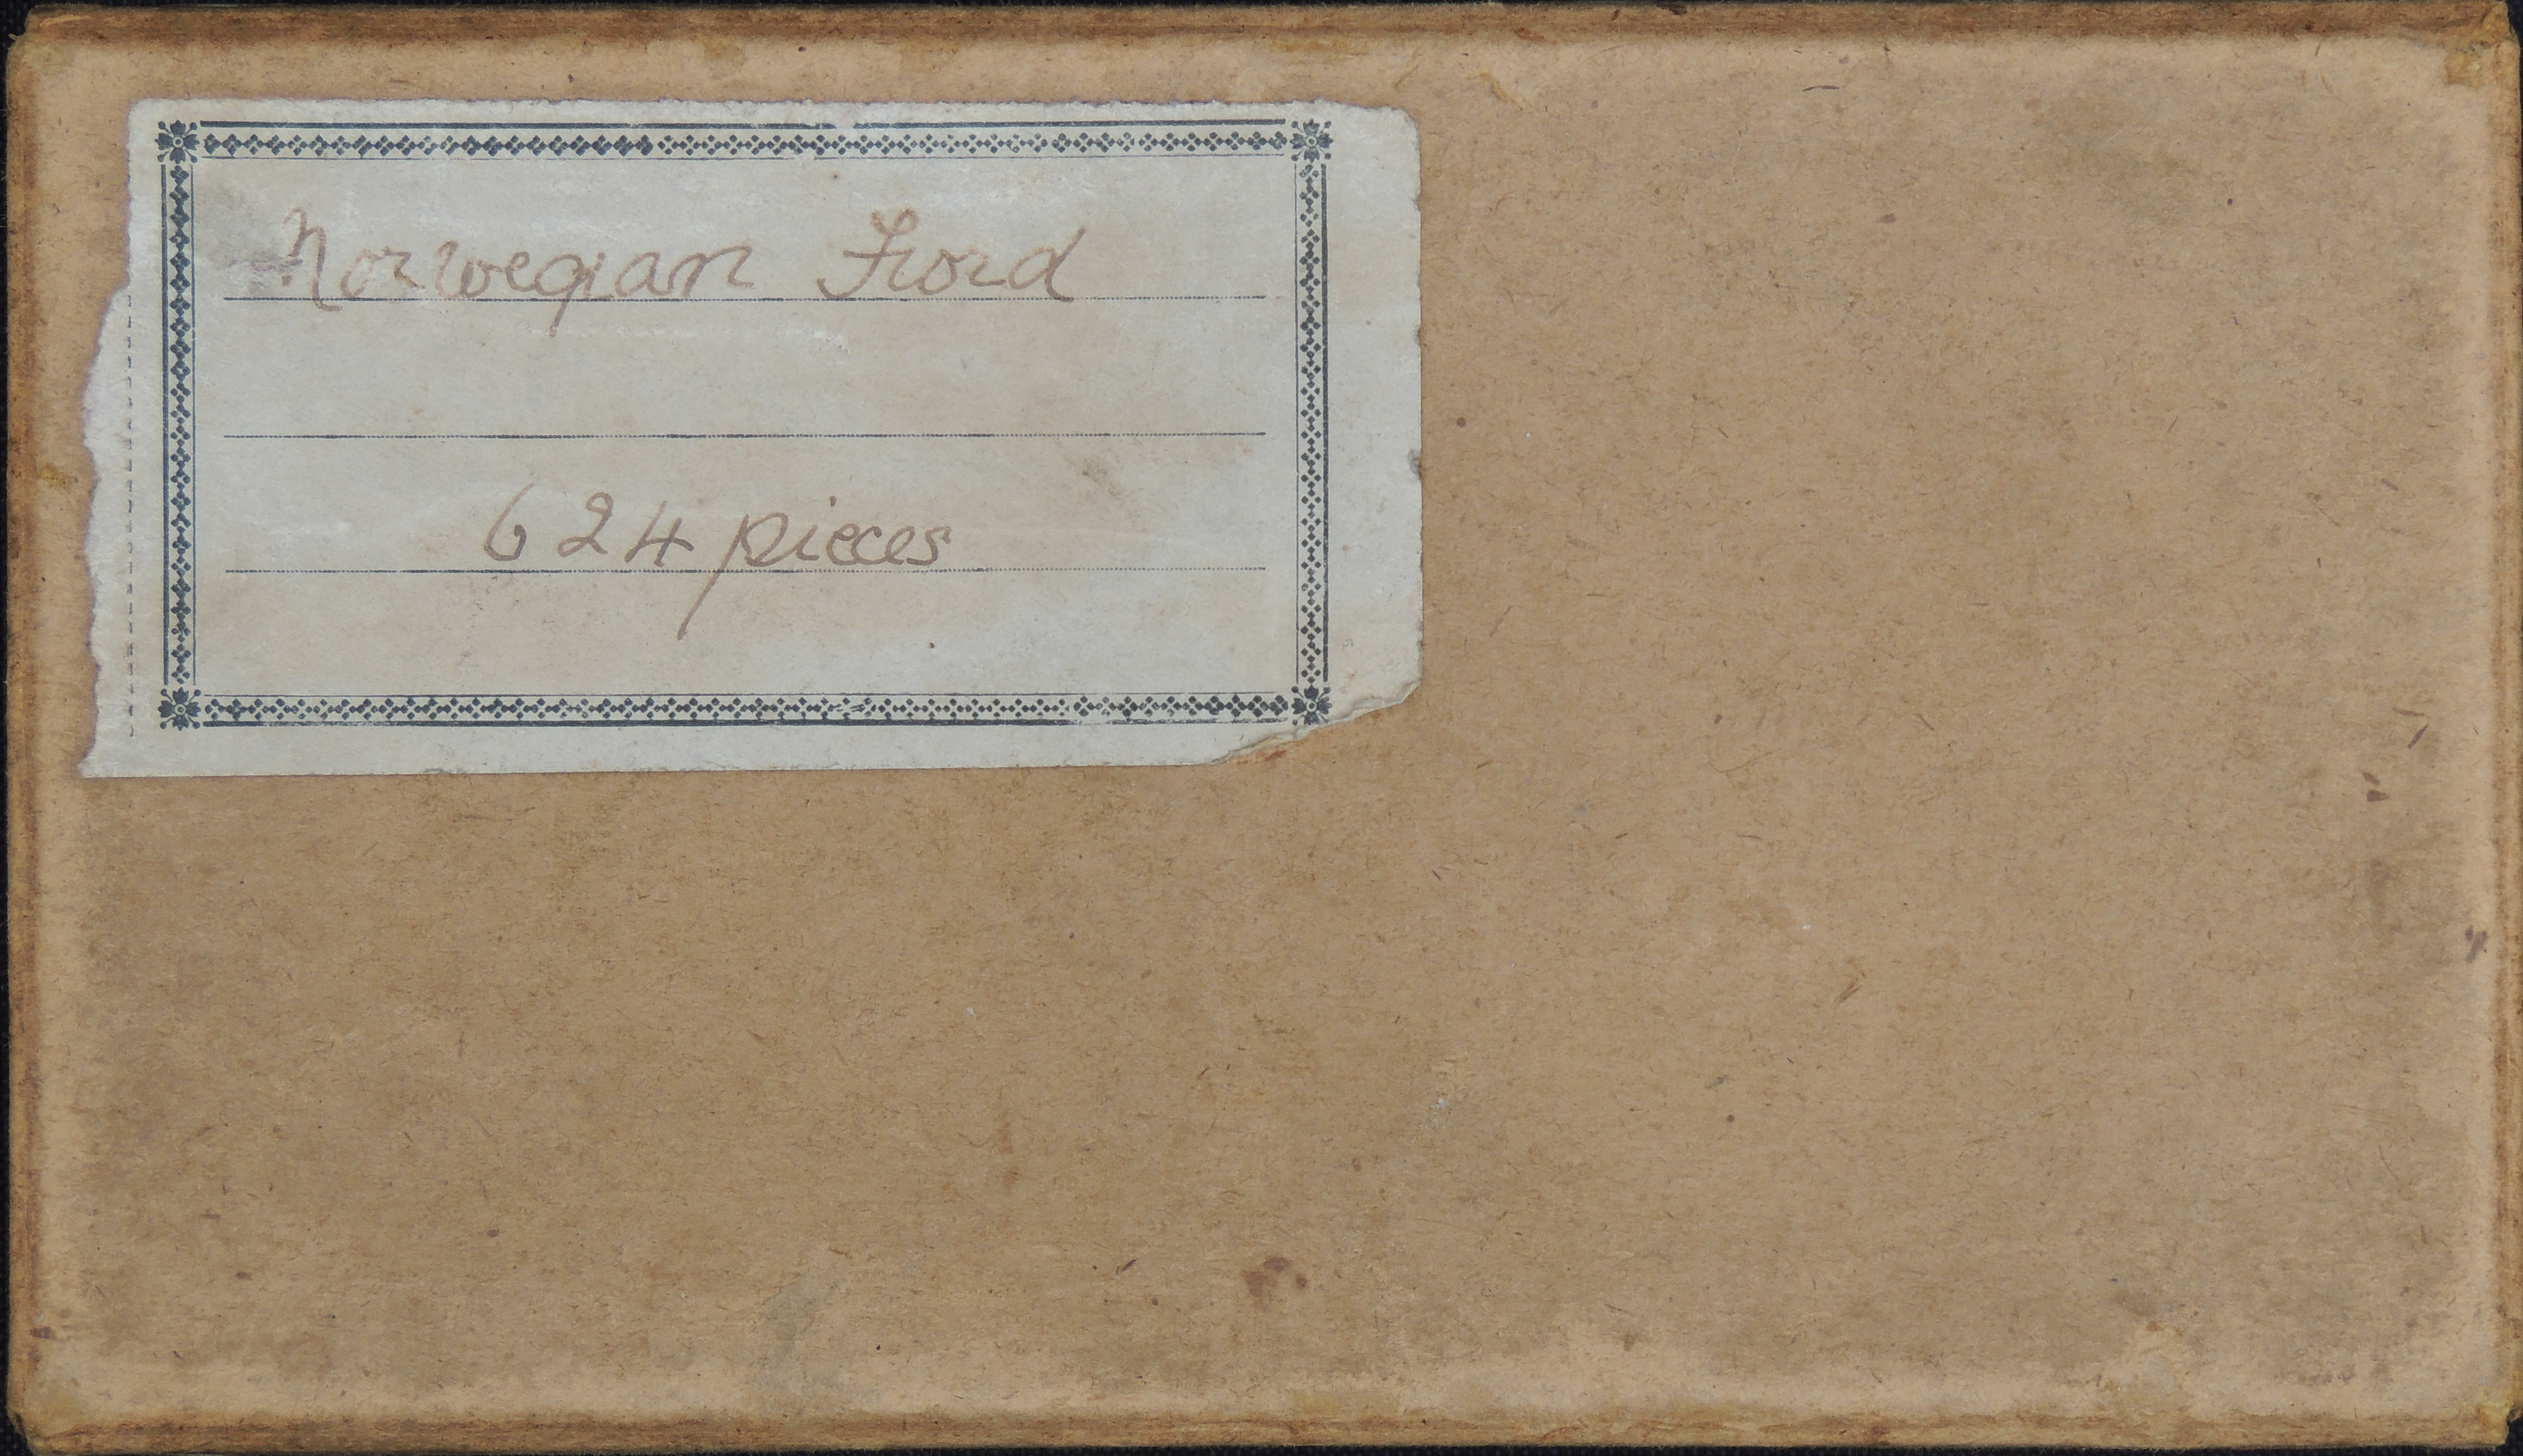 Norwegian Fiord
624 pieces